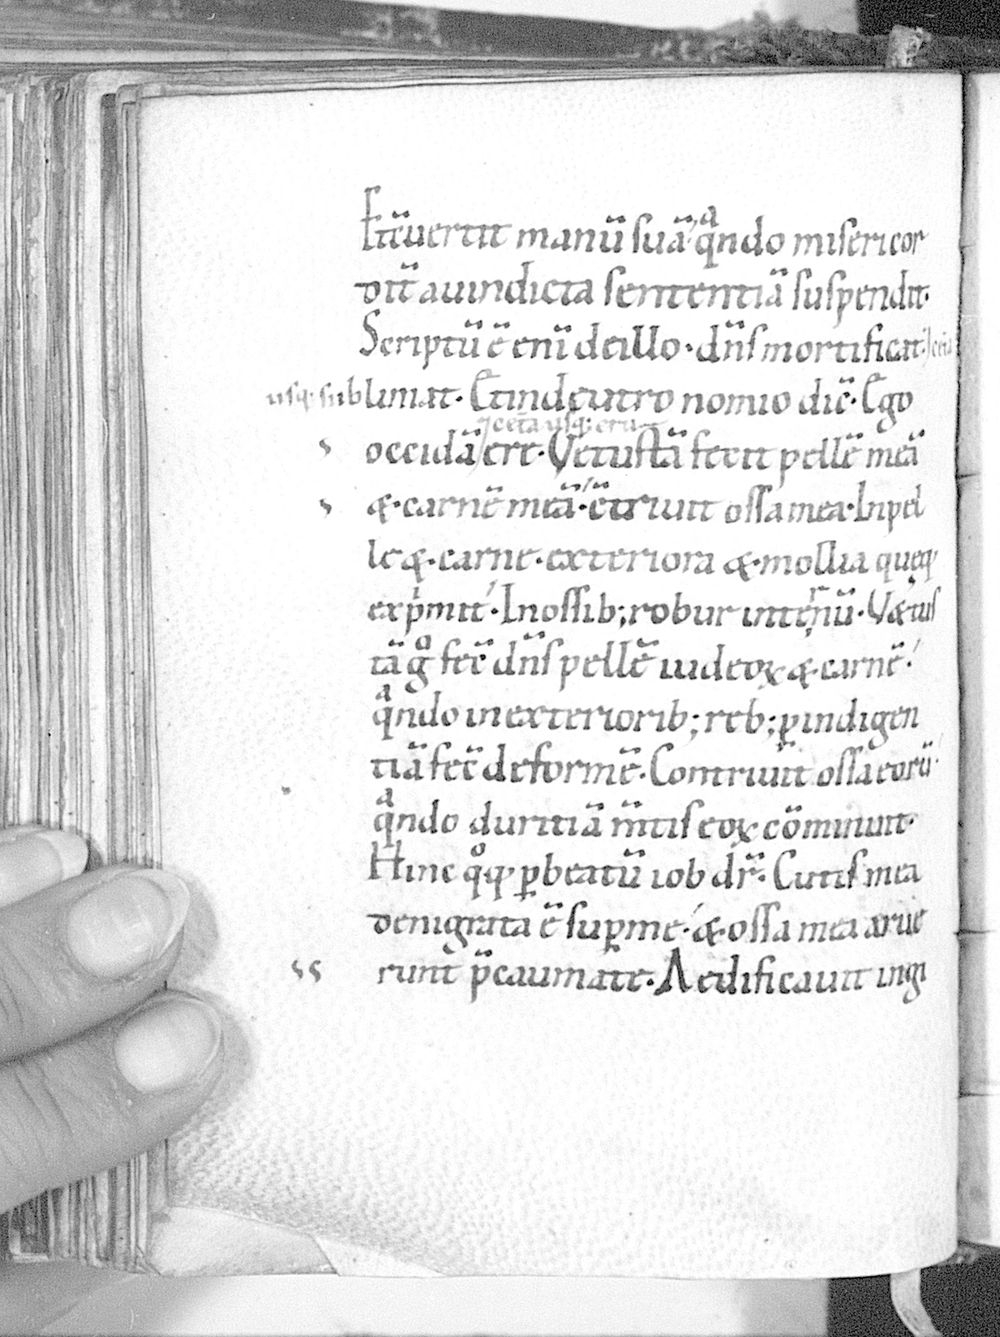 Et c̄uertit manū suā qͣndo misericor
dit̄ a uindicta sententiā suspendit.
Scriptū ē enī de illo. dn̄s mortificat. 
usq; sublimat. Et in deutro nomio dic̄. Ego
occidā 7 cetͣa usq; erū
ere. Vetustā fecit pellē meā
&. carnē meā. c̄triuit ossa mea. In pel
le &. carne. exteriora &. mollia queq;
exp̍mit. In ossib; robur int̄nū. Vetus
tā gͦ fec̄ dn̄s pellē iudeoꝝ &. carnē.
qͣndo in exteriorib; reb; ꝑ indigen
tiā fec̄ deformē. Contriuit ossa eorū.
qͣndo duritiā m̄tis eoꝝ cōminuit.
Hinc qͦq; ꝑ beatū iob dr̄. Cutis mea
denigrata ē suꝑ me. &. ossa mea arue
runt p̄ caumate. Aedificauit in gi